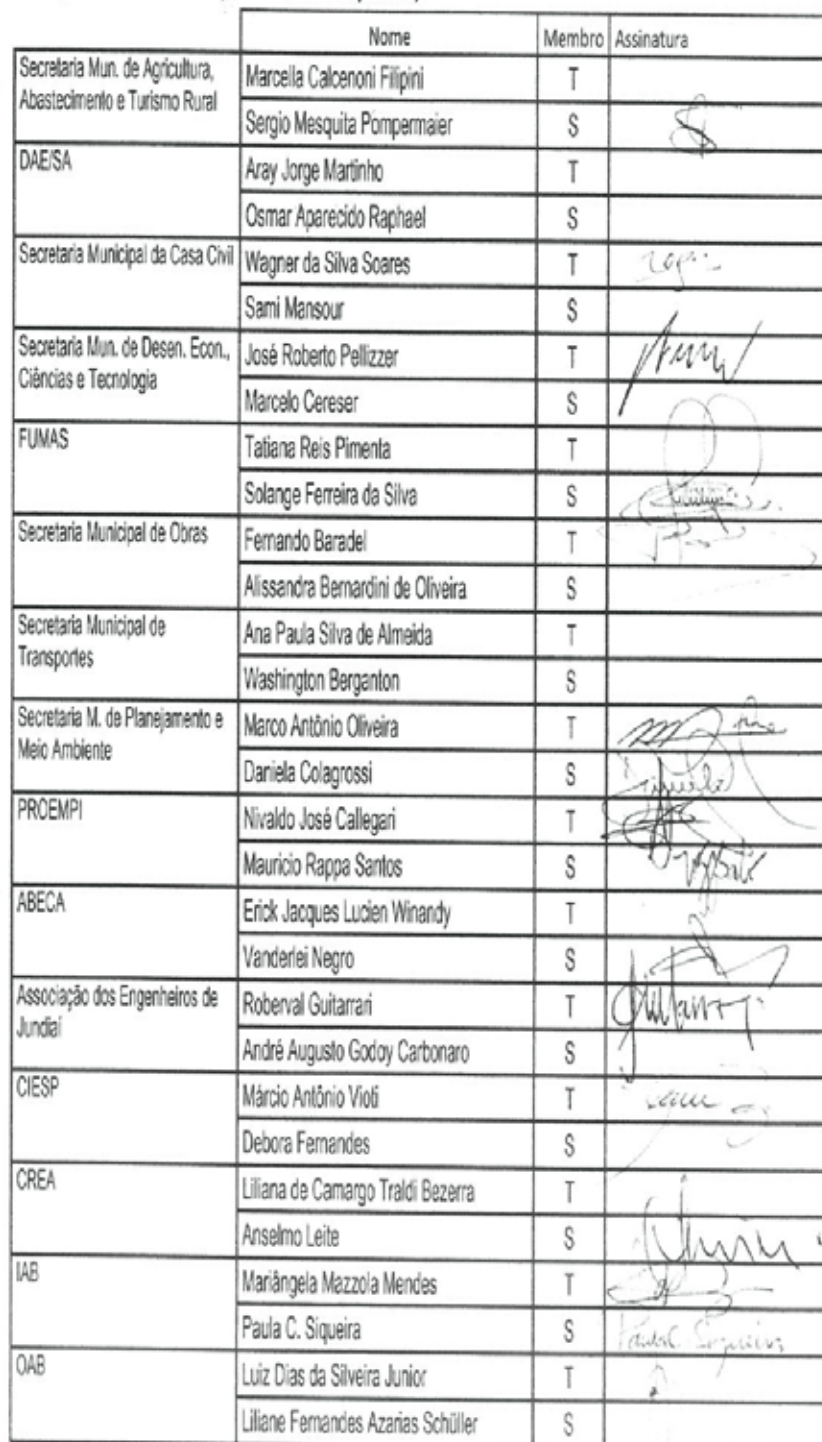 Nome Membro Assinatura
Secretaria Mun. de Agricultura, Marcella Calcenoni Filipini T
Abastecimento e Turismo Rural
Sergio Mesquita Pompermaier S
DAE/SA Aray Jorge Martinho T
Osmar Aparecido Raphael S
Secretaria Municipal da Casa Civil Wagner da Silva Soares T
Sami Mansour S
Secretaria Mun. de Desen. Econ., José Roberto Pellizzer T
Ciências e Tecnologia
Marcelo Cereser S
FUMAS Tatiana Reis Pimenta T
Solange Ferreira da Silva S
Secretaria Municipal de Obras Fernando Baradel T
Alissandra Bernardini de Oliveira S
Secretaria Municipal de Ana Paula Silva de Almeida T
Transportes
Washington Berganton S
Secretaria M. de Planejamento e Marco Antônio Oliveira T
Meio Ambiente
Daniela Colagrossi S
PROEMPI Nivaldo José Callegari T
Mauricio Rappa Santos S
ABECA Erick Jacques Lucien Winandy T
Vanderlei Negro S
Associação dos Engenheiros de Roberval Guitarrari T
Jundiaí
André Augusto Godoy Carbonaro S
CIESP Márcio Antônio Vioti T
Debora Fernandes S
CREA Liliana de Camargo Traldi Bezerra T
Anselmo Leite S
IAB Mariângela Mazzola Mendes T
Paula C. Siqueira S Paula C. Siqueira
OAB Luiz Dias da Silveira Junior T
Liliane Fernandes Azarias Schüller S